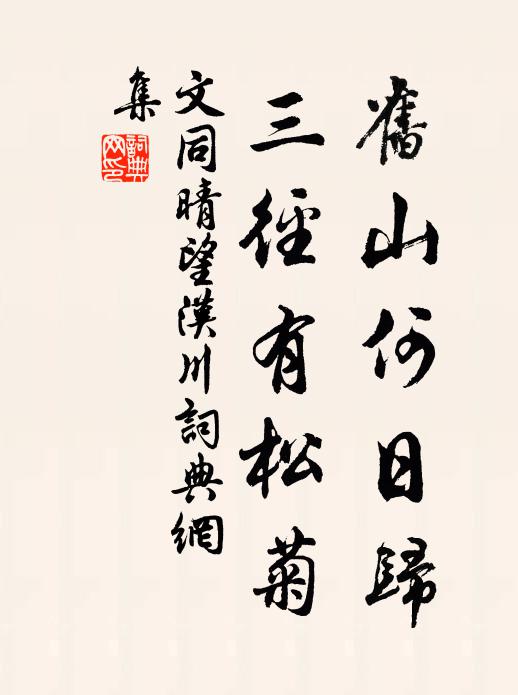 舊山何日歸
三徑有松菊
文同晴望漢川詞典網
集
詞典網印